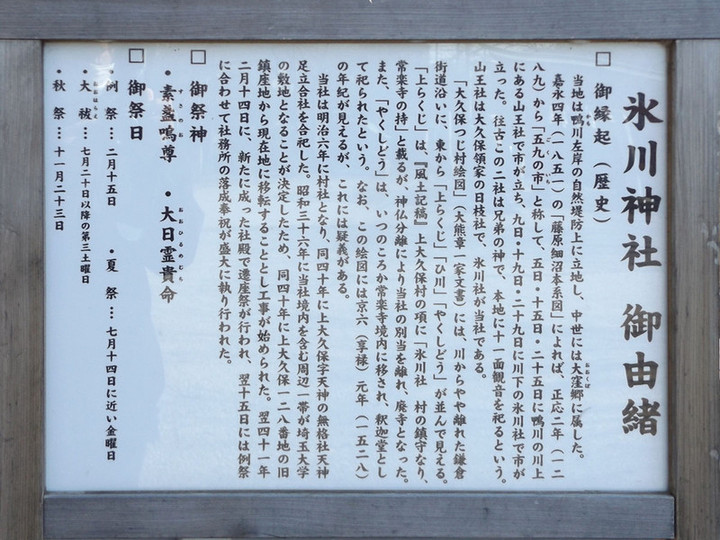 氷川神社 御由緒
□ 御縁起（歴史）
当地は鴨川左岸の自然堤防上に立地し、中世には大窪郷に属した。
嘉永四年（一八五一）の「藤原細沼本系図」によれば、正応二年（一二
八九）から「五九の市」と称して、五日・十五日・二十五日に鴨川の川上
にある山王社で市が立ち、九日・十九日・二十九日に川下の氷川社で市が
立った。往古この二社は兄弟の神で、本地に十一面観音を祀るという。
山王社は大久保領家の日枝社で、氷川社が当社である。
「大久保つじ村絵図」（大熊章一家文書）には、川からやや離れた鎌倉
街道沿いに、東から「上らくじ」「ひ川」「やくしどう」が並んで見える。
「上らくじ」は、『風土記稿』上大久保村の項に「氷川社 村の鎮守なり、
常楽寺の持」と載るが、神仏分離により当社の別当を離れ、廃寺となった。
また、「やくしどう」は、いつのころか常楽寺境内に移され、釈迦堂とし
て祀られたという。なお、この絵図には京六（享禄）元年（一五二八）
の年紀が見えるが、これには疑義がある。
当社は明治六年に村社となり、同四十年に上大久保字天神の無格社天神
足立合社を合祀した。昭和三十六年に当社境内を含む周辺一帯が埼玉大学
の敷地となることが決定したため、同四十年に上大久保一二八番地の旧
鎮座地から現在地に移転することとし工事が始められた。翌四十一年
二月十四日に、新たに成った社殿で遷座祭が行われ、翌十五日には例祭
に合わせて社務所の落成奉祝が盛大に執り行われた。
□ 御祭神
・素盞嗚尊 ・大日霊貴命
□ 御祭日
・例 祭… 二月十五日 ・夏 祭… 七月十四日に近い金曜日
・大 祓… 七月二十日以降の第三土曜日
・秋 祭… 十一月二十三日